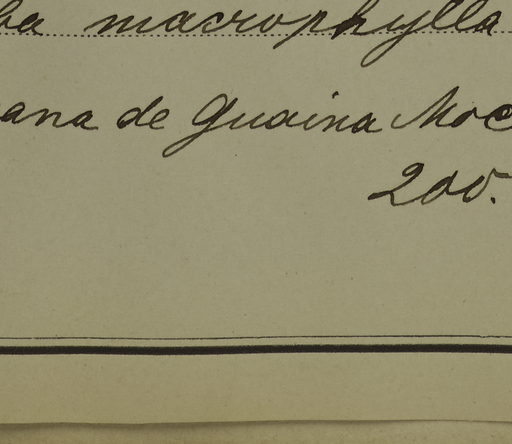 ba macrophylla
ana de Guaina Moc
200.